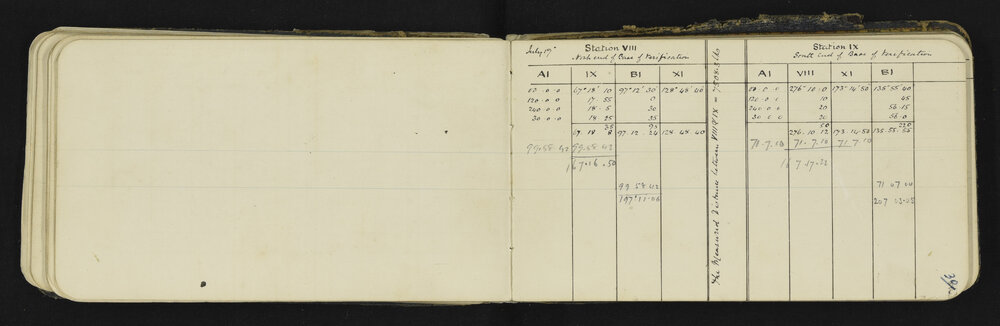 July 17th
Station VIII
North end of Base of Verification
AI IX BI XI
00 . 0 . 0 67° 18' 10 97° 12' 30" 128° 48' 40
120 . 0 . 0 17 . 55 0
240 . 0 . 0 18 . 5 30
30 . 0 . 0 18 . 25 35
35 95
67 . 18 8 97 . 12 . 24 128 . 48 . 40
99.58.42 99.58.42
167.16.50
99 58 42
197 11.06
The Measured Distance between VIII & IX =
Station IX
South end of Base of Verification
AI VIII XI BI
00 . 0 . 0 276° 10 . 0 173° 14' 50 135° 55' 40"
120 . 0 . 0 10 45
240 . 0 . 0 20 56.15
30 . 0 . 0 20 56.0
50 220
276.10.12 173.14.50 135.55.55
71.7.10 71.7.10 71.7.10
71 07 00
39